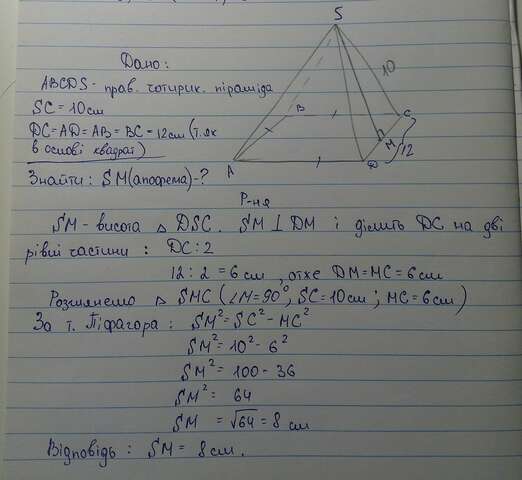 S
Дано:
ABCDS - прав. чотирик. піраміда
SC = 10 см
DC = AD = AB = BC = 12 см (т. як
в основі квадрат)
10
B
C
M
12
A
D
Знайти: SM (апофема) - ?
Р-ня
SM - висота △ DSC. SM ⊥ DM і ділить DC на дві
рівні частини : DC : 2
12 : 2 = 6 см, отже DM = MC = 6 см
Розглянемо △ SMC (∠M = 90°, SC = 10 см ; MC = 6 см)
За т. Піфагора : SM² = SC² - MC²
SM² = 10² - 6²
SM² = 100 - 36
SM² = 64
SM = √64 = 8 см
Відповідь : SM = 8 см.